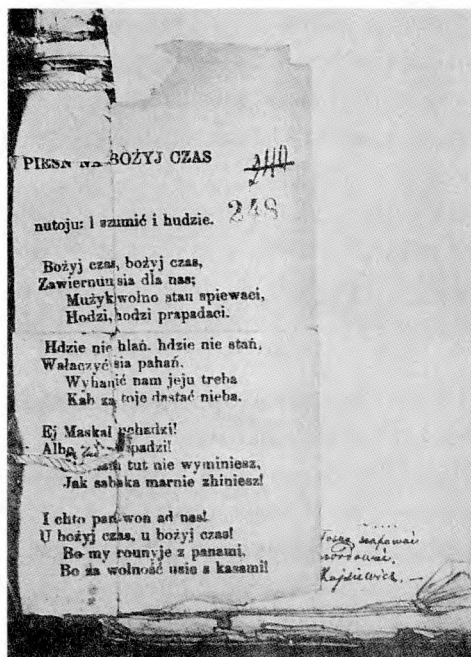 PIESŃ NA BOŻYJ CZAS
240
248
nutoju: I szumić i hudzie.
Bożyj czas, bożyj czas,
Zawiernuu sia dla nas;
Mużyk wolno stau spiewaci,
Hodzi, hodzi prapadaci.
Hdzie nie hlań, hdzie nie stań,
Wałaczyć sia pahań.
Wyhanić nam jeju treba
Kab za toje dastać nieba.
Ej Maskal pahadzi!
Albo
tut nie wyminiesz,
Jak sabaka marnie zhiniesz!
I chto pan won ad nas!
U bożyj czas, u bożyj czas!
Bo my rounyje z panami,
Bo za wolność usie z kasami!